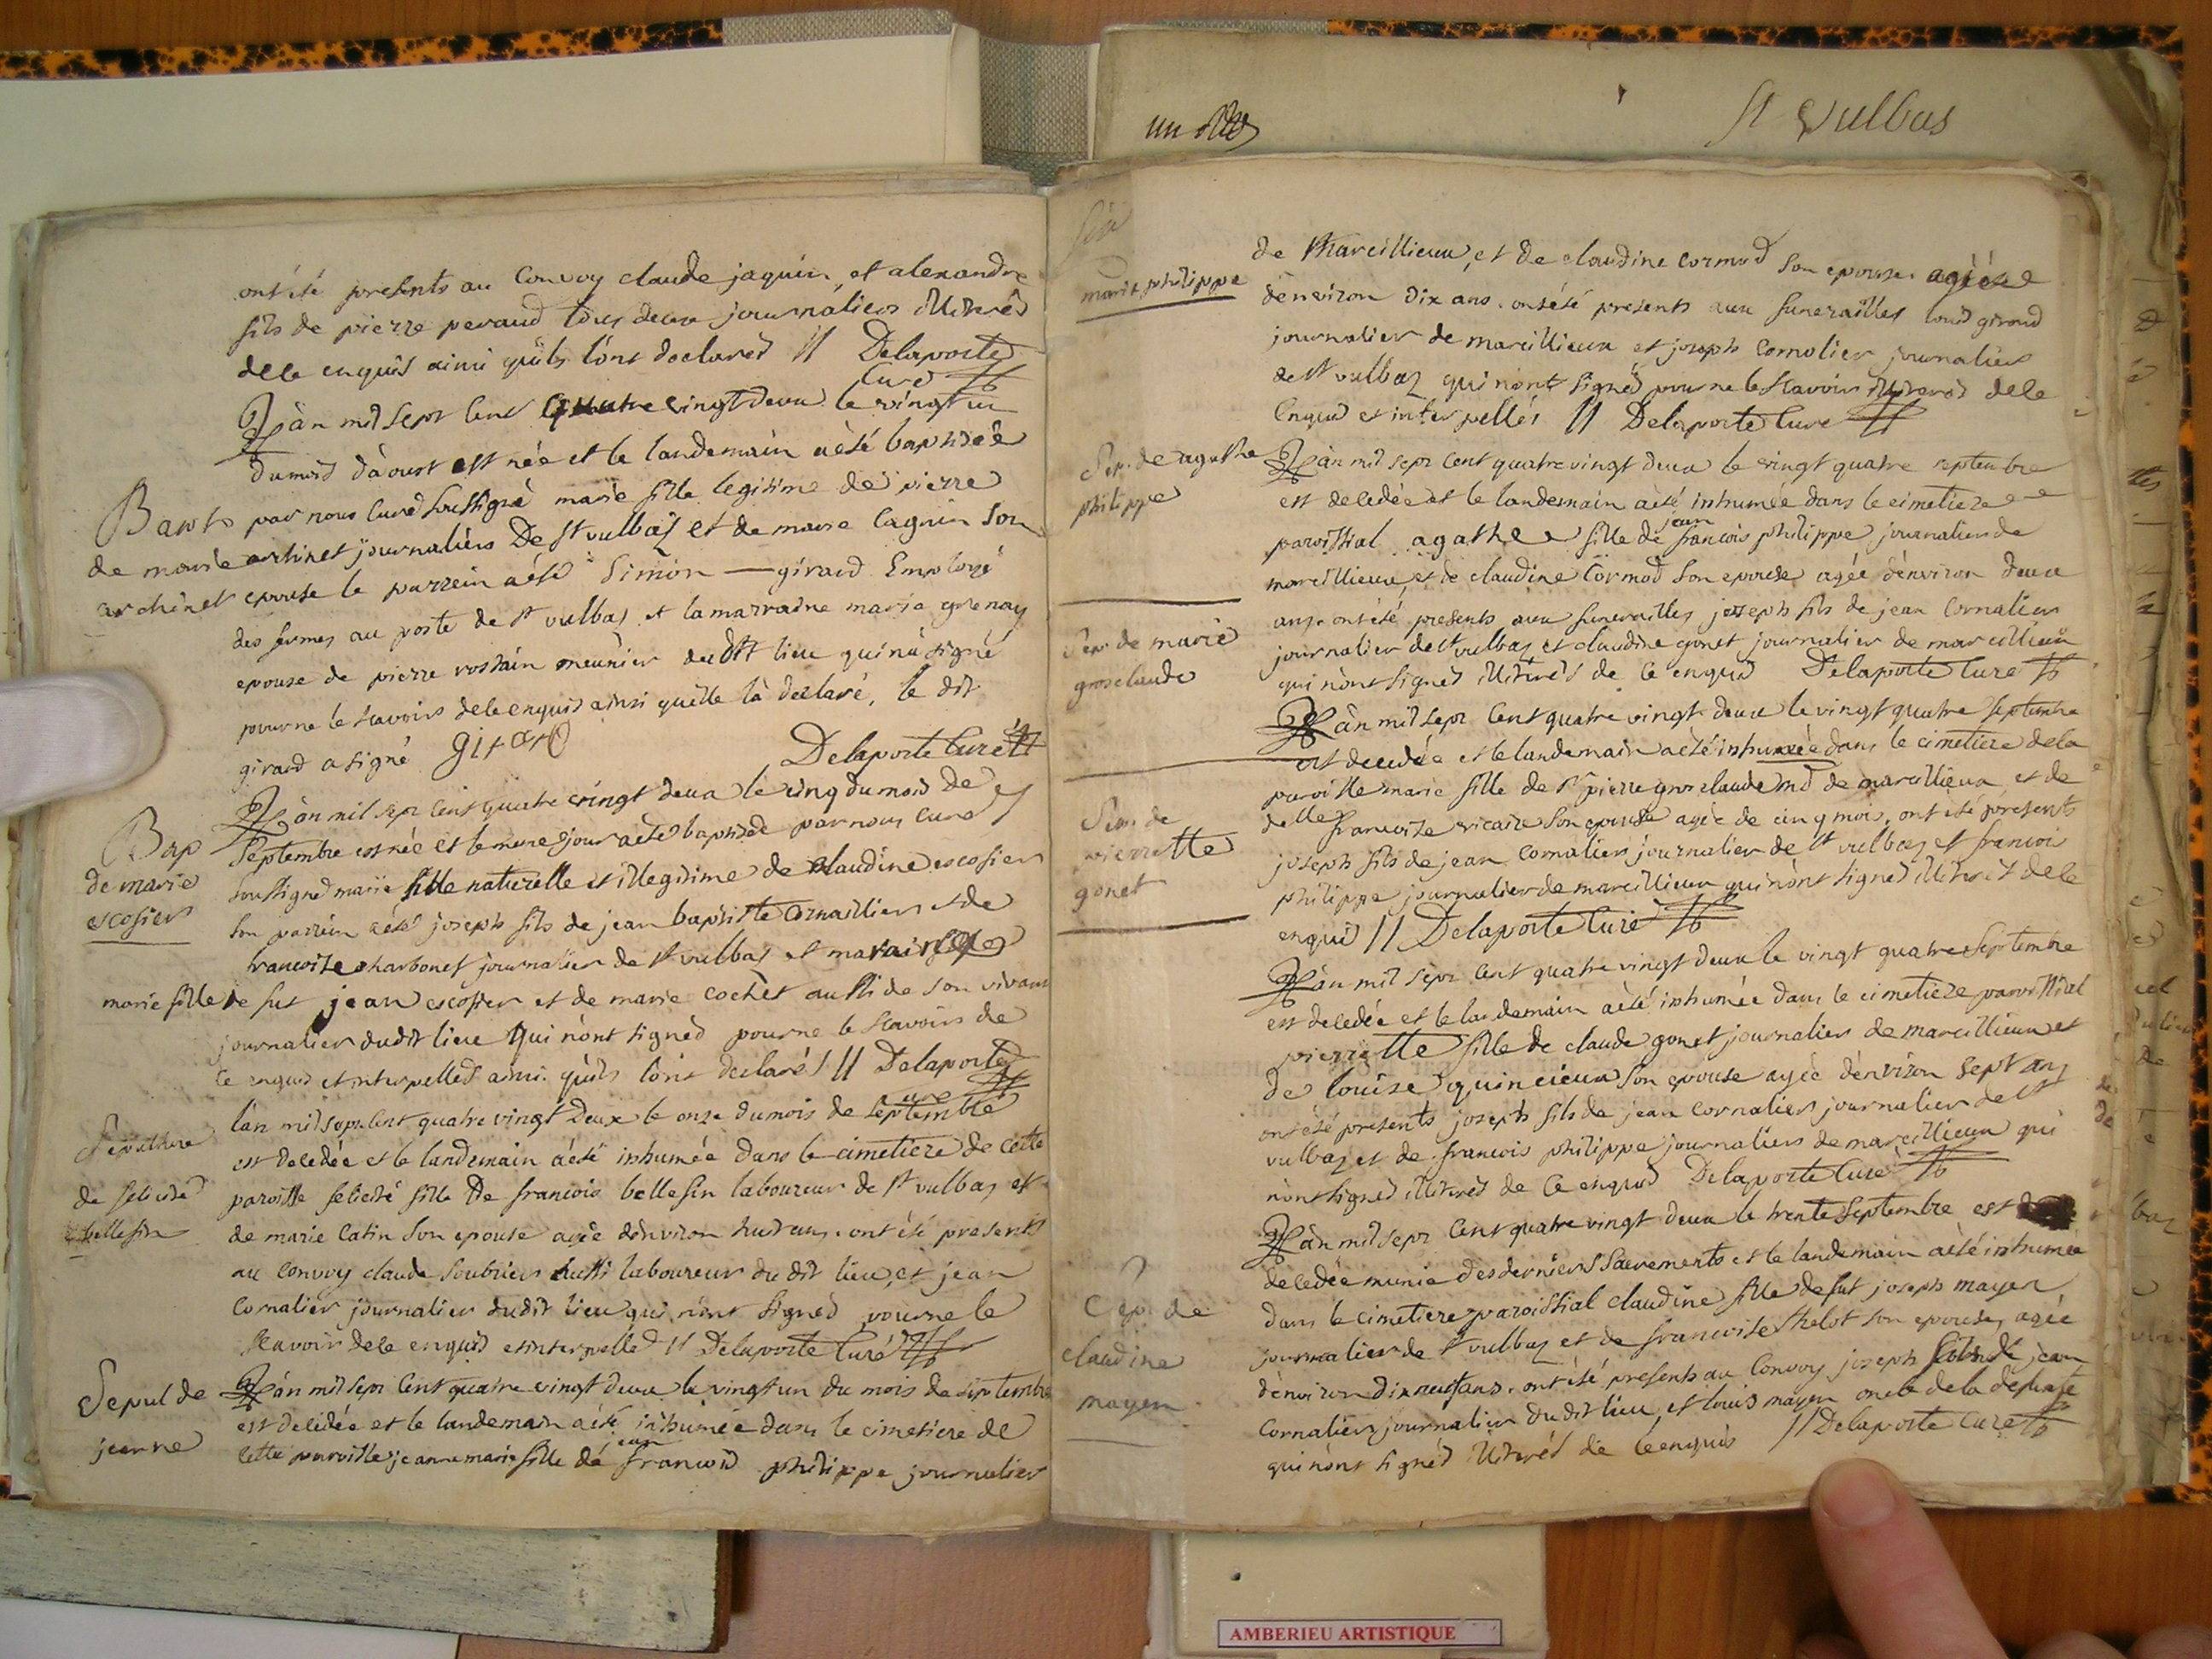 St Vulbas
ont été presents au Convoy claude jaquin, et alexandre
fils de pierre peraud tous deux journaliers illiterés
de ce enquis ainsi qu'ils l'ont declared // Delaporte
Curé
L'àn mil sept Cent quatre vingt deux le vingt un
du mois d'àoust est née et le landemain àété baptisée
par nous Curé soussigné marie fille legitime de pierre
Bapt
de marie
archinet
archinet journaliers De st vulbas et de marie Caguin son
epouse le parrein aété Simon — girard Employé
des fermes au poste de st vulbas et la marraine marie grenay
epouse de pierre rostain meunier du dit lieu qui nà signé
pour ne le scavoir de ce enquis ainsi quelle là declaré, le dit
girard a signé girard Delaporte Curé
L'àn mil sept Cent quatre vingt deux le cinq du mois de
Bap
de marie
escosier
Septembre est née et le meme jour aété baptisée par nous Curé
soussigned marie fille naturelle et illegitime de claudine escosier
son parrein aété joseph fils de jean baptiste Cornaillier et de
francoise charbonet journalier de st vulbas et maraine
marie fille de fut jean escosier et de marie cochet aussi de son vivant
journalier dudit lieu qui nònt signed pour ne le scavoir de
ce enquis et interpelled ainsi quils lònt declarés // Delaporte
curé
làn mil sept Cent quatre vingt Deux le onze du mois de septembre
Sepulture
de felicité
bellefin
est decedée et le landemain àeté inhumée dans le cimetiere de cette
paroisse felicité fille De francois bellefin laboureur de st vulbas et
de marie Catin son epouse agée dènviron huit ans. ont été presents
au Convoy claude Soubrier aussi laboureur du dit lieu, et jean
Cornalier journalier dudit lieu qui nònt signed pour ne le
scavoir de ce enquis et interpelled // Delaporte Curé
Sepul de
jeanne
L'àn mil sept Cent quatre vingt deux le vingt un du mois de septembre
est decedée et le landemain aété inhumée dans le cimetiere de
cette paroisse jeanne marie fille de jean francois philippe journalier
marie philippe
de Marcillieux, et de claudine cormod son epouse agée
dènviron dix ans. ont été presents aux funerailles louis girond
journalier de marcillieux et joseph Cornalier journalier
de st vulbaz qui nònt signed pour ne le scavoir illiterés de ce
Enquis et interpellés // Delaporte Curé
Sep. de agathe
philippe
L'àn mil sept Cent quatre vingt deux le vingt quatre septembre
est decedée et le landemain aété inhumée dans le cimetiere
paroissial agathe fille de jean francois philippe journalier de
marcillieux, et de claudine Cormod son epouse, agée dènviron deux
ans. ont été presents aux funerailles joseph fils de jean Cornalier
journalier de st vulbaz et claudine gonet journalier de marcillieux
qui nònt signed illiterés de ce enquis Delaporte Curé
Sep. de marie
groslaude
L'àn mil sept Cent quatre vingt deux le vingt quatre septembre
est decedée et le landemain aété inhumée dans le cimetiere de la
paroisse marie fille de sr pierre grosclaude md de marcillieux et de
delle francoise vicaire son epouse agée de cinq mois, ont été presents
joseph fils de jean Cornalier journalier de st vulbaz et francois
philippe journalier de marcillieux qui nònt signed illiterés de ce
enquis // Delaporte Curé
Sep. de
pierrette
gonet
L'àn mil sept Cent quatre vingt deux le vingt quatre Septembre
est decedée et le landemain aété inhumée dans le cimetiere paroissial
pierrette fille de claude gonet journalier de marcillieux et
de louise quincieux son epouse agée dènviron sept ans
ont été presents joseph fils de jean Cornalier journalier de st
vulbaz et de francois philippe journaliers de marcillieux qui
nònt signed illiterés de ce enquis Delaporte Curé
L'àn mil sept Cent quatre vingt deux le trente Septembre est
Sep. de
claudine
mayen
decedée munie des derniers Sacrements et le landemain aété inhumée
dans le cimetiere paroissial claudine fille de fut joseph mayen
journalier de st vulbaz et de francoise thelot son epouse, agée
dènviron dixneuf ans. ont été presents au Convoy joseph fils de jean
Cornalier journalier du dit lieu, et louis mayen oncle de la defunte
qui nònt signés illiterés de ce enquis // Delaporte Curé
AMBERIEU ARTISTIQUE